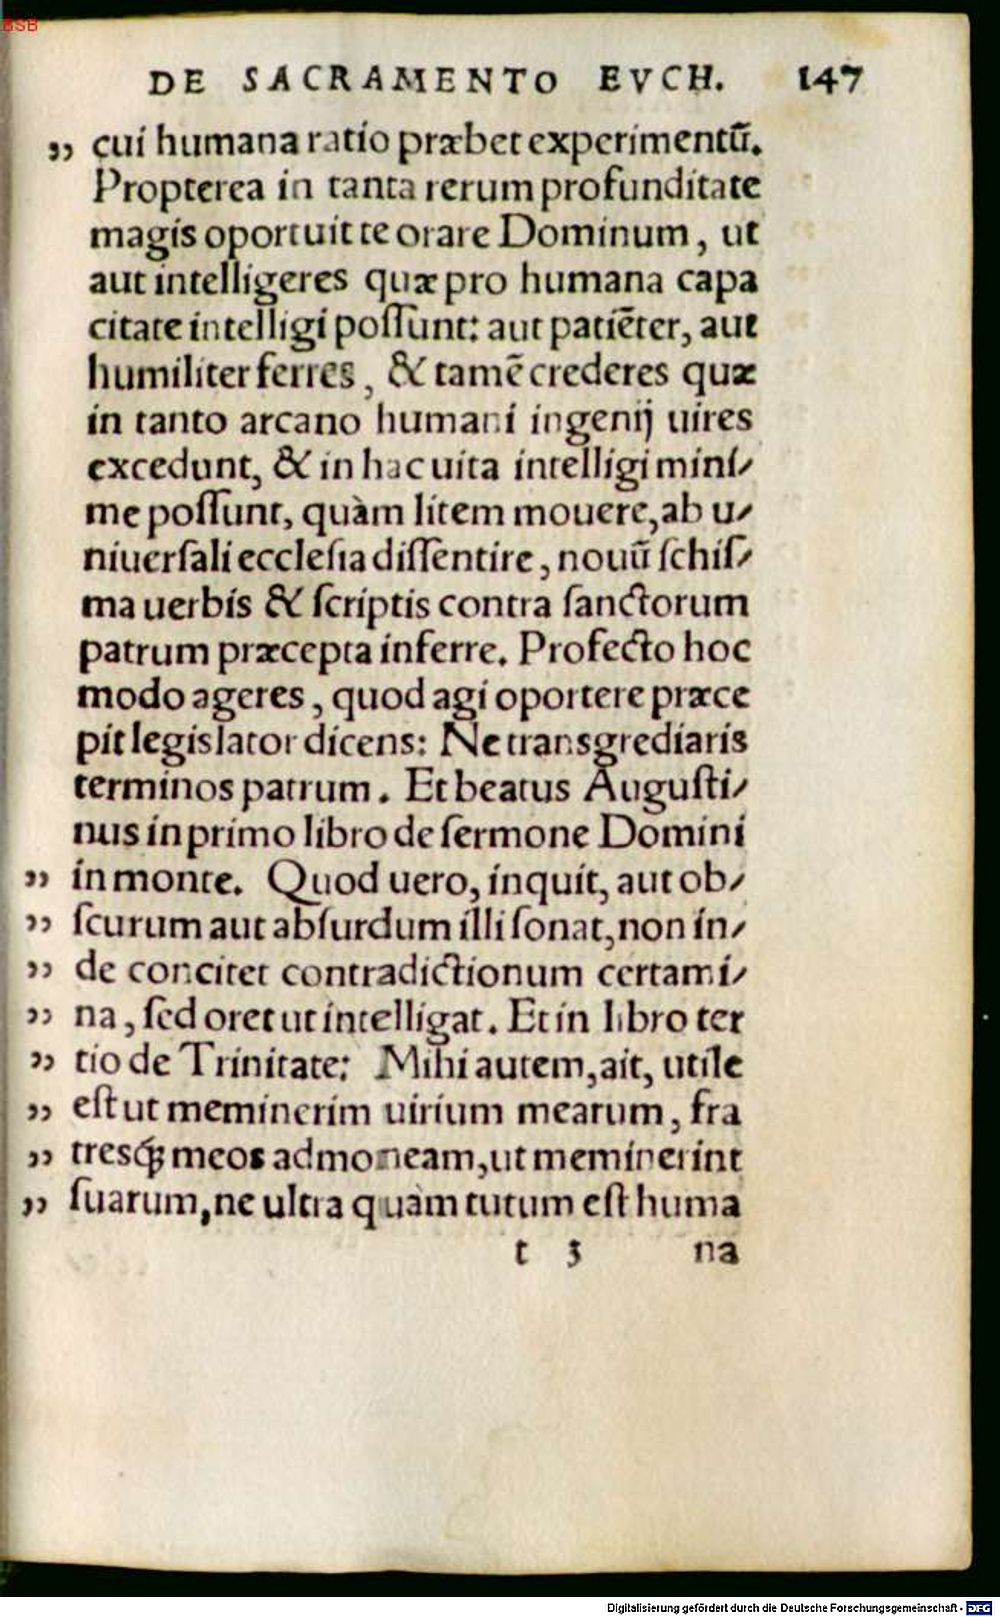 BSB
DE SACRAMENTO EVCH. 147
„ cui humana ratio præbet experimentū.
Propterea in tanta rerum profunditate
magis oportuit te orare Dominum, ut
aut intelligeres quæ pro humana capa
citate intelligi poſſunt: aut patiēter, aut
humiliter ferres, & tamē crederes quæ
in tanto arcano humani ingenij uires
excedunt, & in hac uita intelligi mini-
me poſſunt, quàm litem mouere, ab u-
niuerſali eccleſia diſſentire, nouū ſchiſ-
ma uerbis & ſcriptis contra ſanctorum
patrum præcepta inferre. Profecto hoc
modo ageres, quod agi oportere præce
pit legislator dicens: Ne transgrediaris
terminos patrum. Et beatus Auguſti-
nus in primo libro de ſermone Domini
„ in monte. Quod uero, inquit, aut ob-
„ ſcurum aut abſurdum illi ſonat, non in-
„ de concitet contradictionum certami-
„ na, ſed oret ut intelligat. Et in libro ter
„ tio de Trinitate: Mihi autem, ait, utile
„ eſt ut meminerim uirium mearum, fra
„ tresq; meos admoneam, ut meminerint
„ ſuarum, ne ultra quàm tutum eſt huma
t 3 na
Digitalisierung gefördert durch die Deutsche Forschungsgemeinschaft - DFG